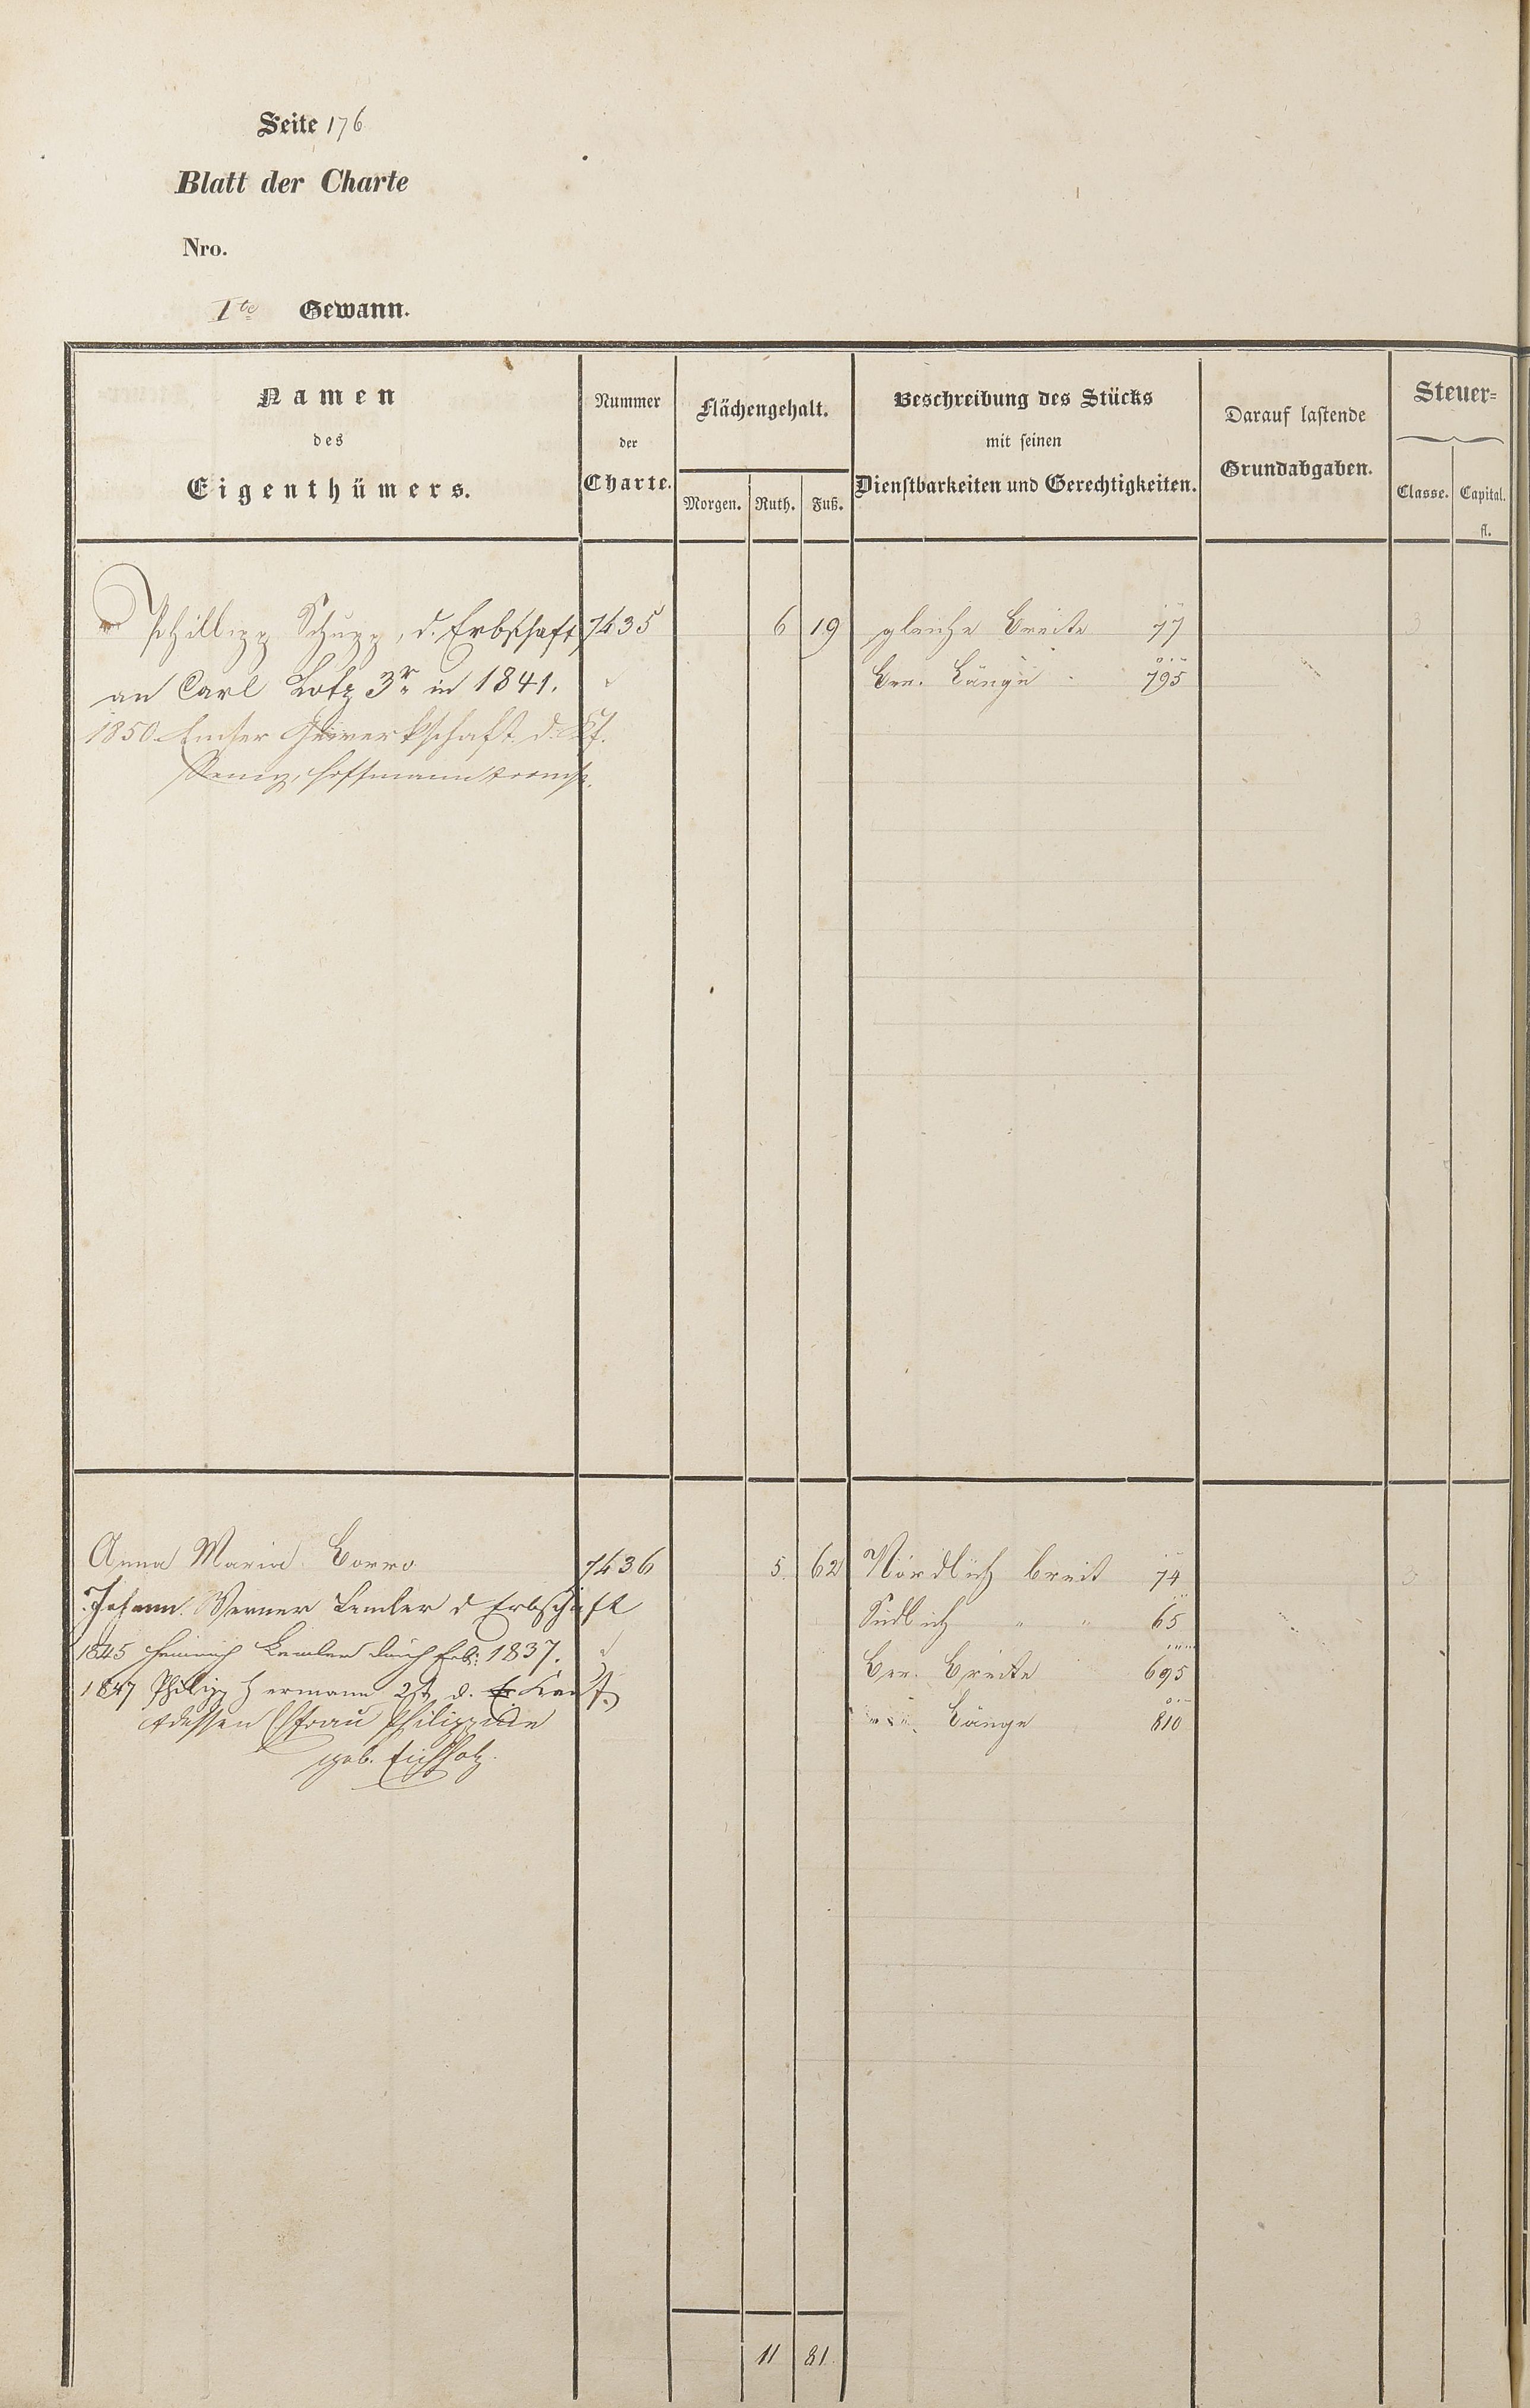 Seite 176
Blatt der Charte
Nro.
1te Gewann.
Namen
des
Eigenthümers.
Nummer
der
Charte.
Flächengehalt.
Morgen. Ruth. Fuß.
Beschreibung des Stücks
mit seinen
Dienstbarkeiten und Gerechtigkeiten.
Darauf lastende
Grundabgaben.
Steuer=
Classe. Capital.
fl.
Phillipp Schupp, d. Erbschaft 7435 6 19 gleiche Breite 77 3
an Carl Lotz 3r in 1841. Ber. Länge 795
1850 Emser Gewerkschaft d. Kf.
Hoffmann
Anna Maria 7436 5 62 Nördlich breit 74 3
Johann Werner Lemler d Erbschaft Südlich " " 65
1845 Heinrich Lemler durch Erb: 1837. Ber. Breite 695
1847 Philipp Hermann 2t d. Kauf. " Länge 810
dessen Efrau Philippine
geb. Eichholz.
11 81